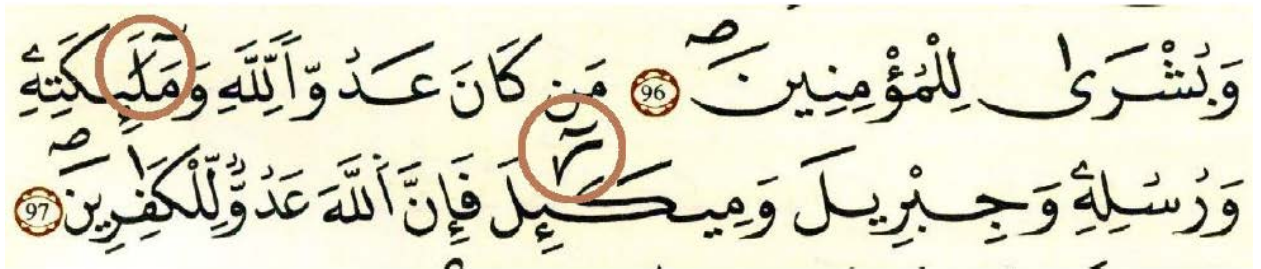 وَبُشْر۪ىٰ لِلْمُؤْمِنِينَۖ 96 مَن كَانَ عَدُوّاٗ لِّلهِ وَمَلَٰٓئِكَتِهِۦ
وَرُسُلِهِۦ وَجِبْرِيلَ وَمِيكَٰٓئِلَ فَإِنَّ اَ۬للَّهَ عَدُوّٞ لِّلْكَٰفِرِينَۖ 97